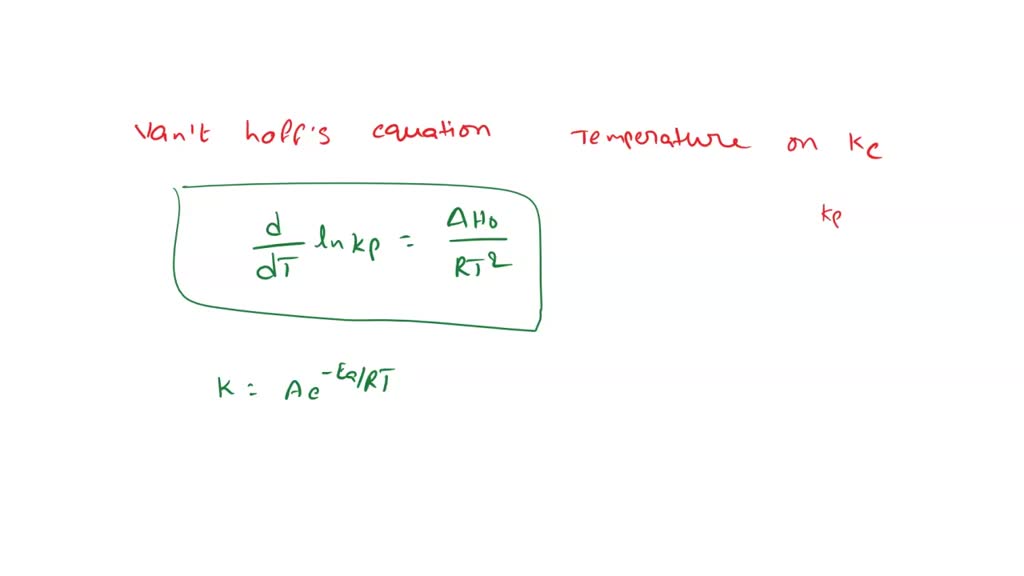 Van't hoff's equation Temperature on Kc
kp
d/dT ln kp = ΔH0/RT²
K = Ae^-Ea/RT